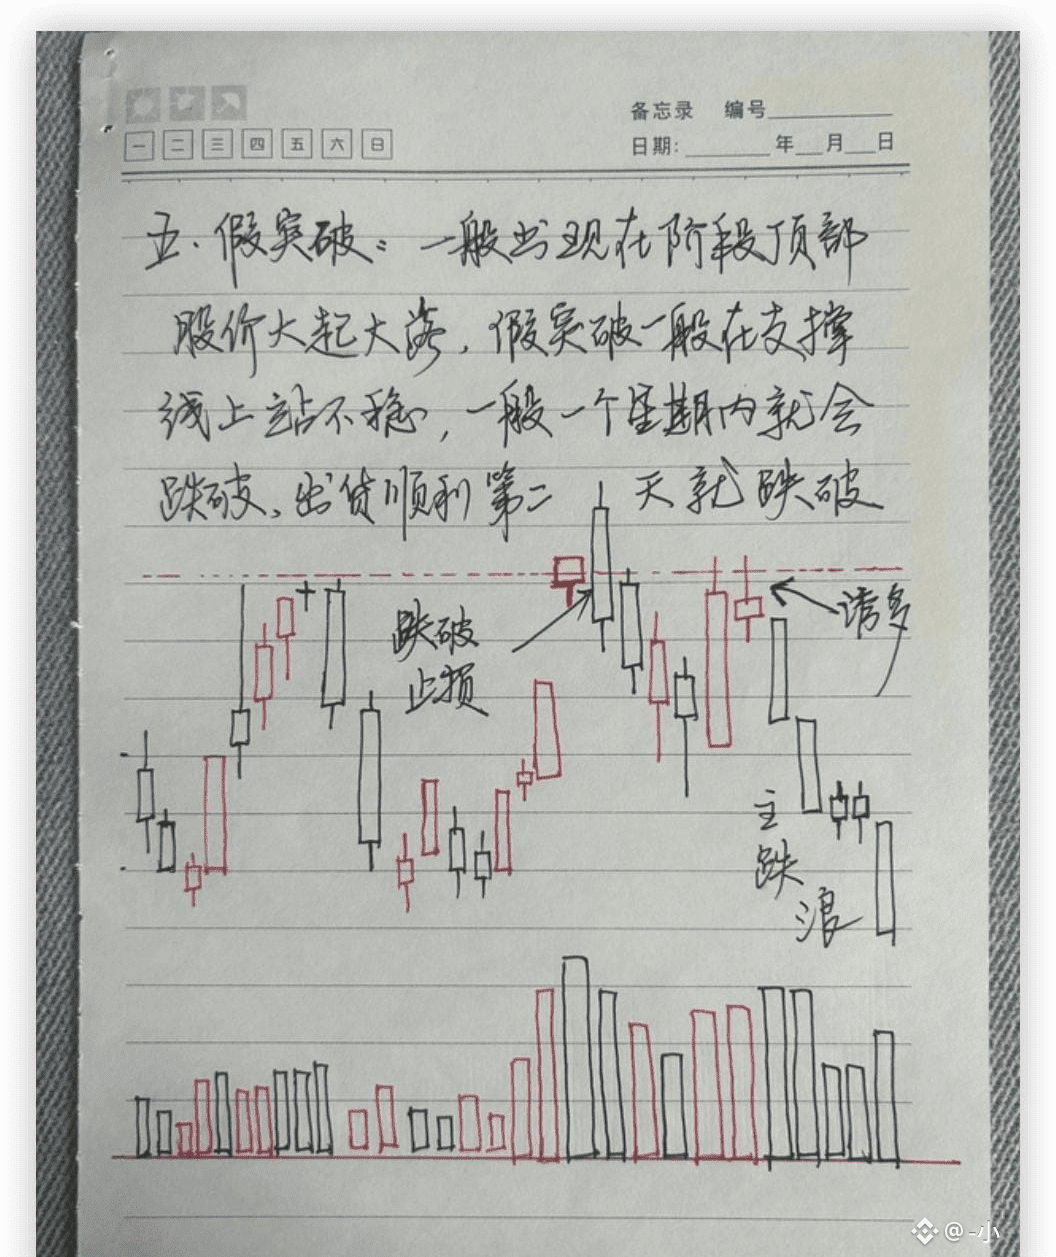 备忘录 编号
一 二 三 四 五 六 日
日期: 年 月 日
五.假突破:一般出现在阶段顶部
股价大起大落,假突破一般在支撑
线上站不稳,一般一个星期内就会
跌破、出货顺利第二 天就跌破
跌破
止损
诱多
主
跌
浪
@-小